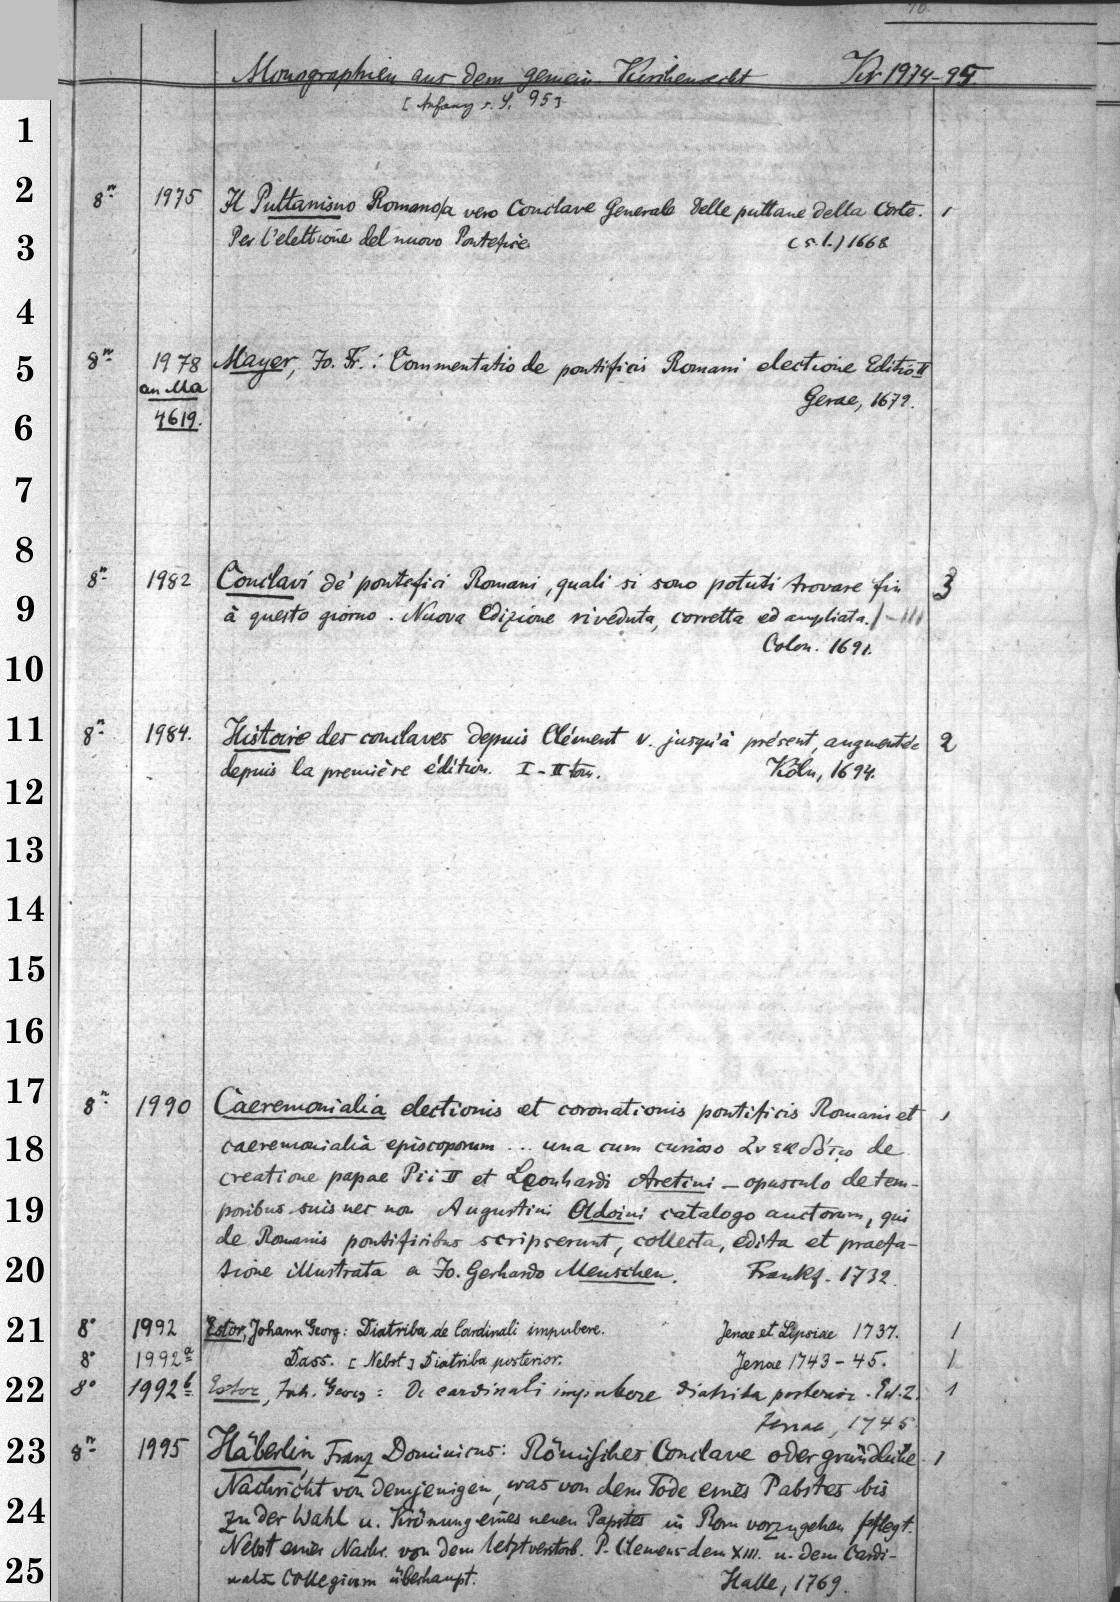 Monographien aus dem gemein. Kirchenrecht Kr 1974-95
[Anfang s. S. 95]
1
2
8º 1975 Il Puttanismo Romano/a vero Conclave Generale delle puttane della Corte. 1
Per l'elettione del nuovo Pontefice. (s.l.) 1668
3
4
5
8º 1978 Mayer, Jo. Fr.: Commentatio de pontificis Romani electione Editio II
an Ma Gerae, 1679.
4619.
6
7
8
8º 1982 Conclavi de' pontefici Romani, quali si sono potuti trovare fin 3
9
à questo giorno. Nuova Edizione riveduta, corretta ed ampliata. I-III
Colon. 1691.
10
11
8º 1984. Histoire des conclaves depuis Clément V. jusqu'à présent, augmentée 2
depuis la première édition. I-II tom. Köln, 1694.
12
13
14
15
16
17
8º 1990 Caeremonialia electionis et coronationis pontificis Romani et 1
18
caeremonialia episcoporum ... una cum curioso Συεκδότῳ de
creatione papae Pii II et Leonhardi Aretini - opusculo de tem-
19
poribus suis nec non Augustini Oldoini catalogo auctorum, qui
de Romanis pontificibus scripserunt, collecta, edita et praefa-
20
tione illustrata a Jo. Gerhardo Meuschen. Frankf. 1732.
21
8º 1992 Estor, Johann Georg: Diatriba de Cardinali impubere. Jenae et Lipsiae 1737. 1
8º 1992a Dass. [Nebst] Diatriba posterior. Jenae 1743-45. 1
22
8º 1992b Estor, Joh. Georg: De cardinali impubere diatriba posterior. Ed. 2. 1
Jenae, 1745
23
8º 1995 Häberlin, Franz Dominicus: Römisches Conclave oder gründliche 1
Nachricht von demjenigen, was von dem Tode eines Pabstes bis
24
zu der Wahl u. Krönung eines neuen Papstes in Rom vorzugehen pflegt.
Nebst einer Nachr. von dem letztverstorb. P. Clemens dem XIII. u. dem Cardi-
25
nals Collegium überhaupt. Halle, 1769.